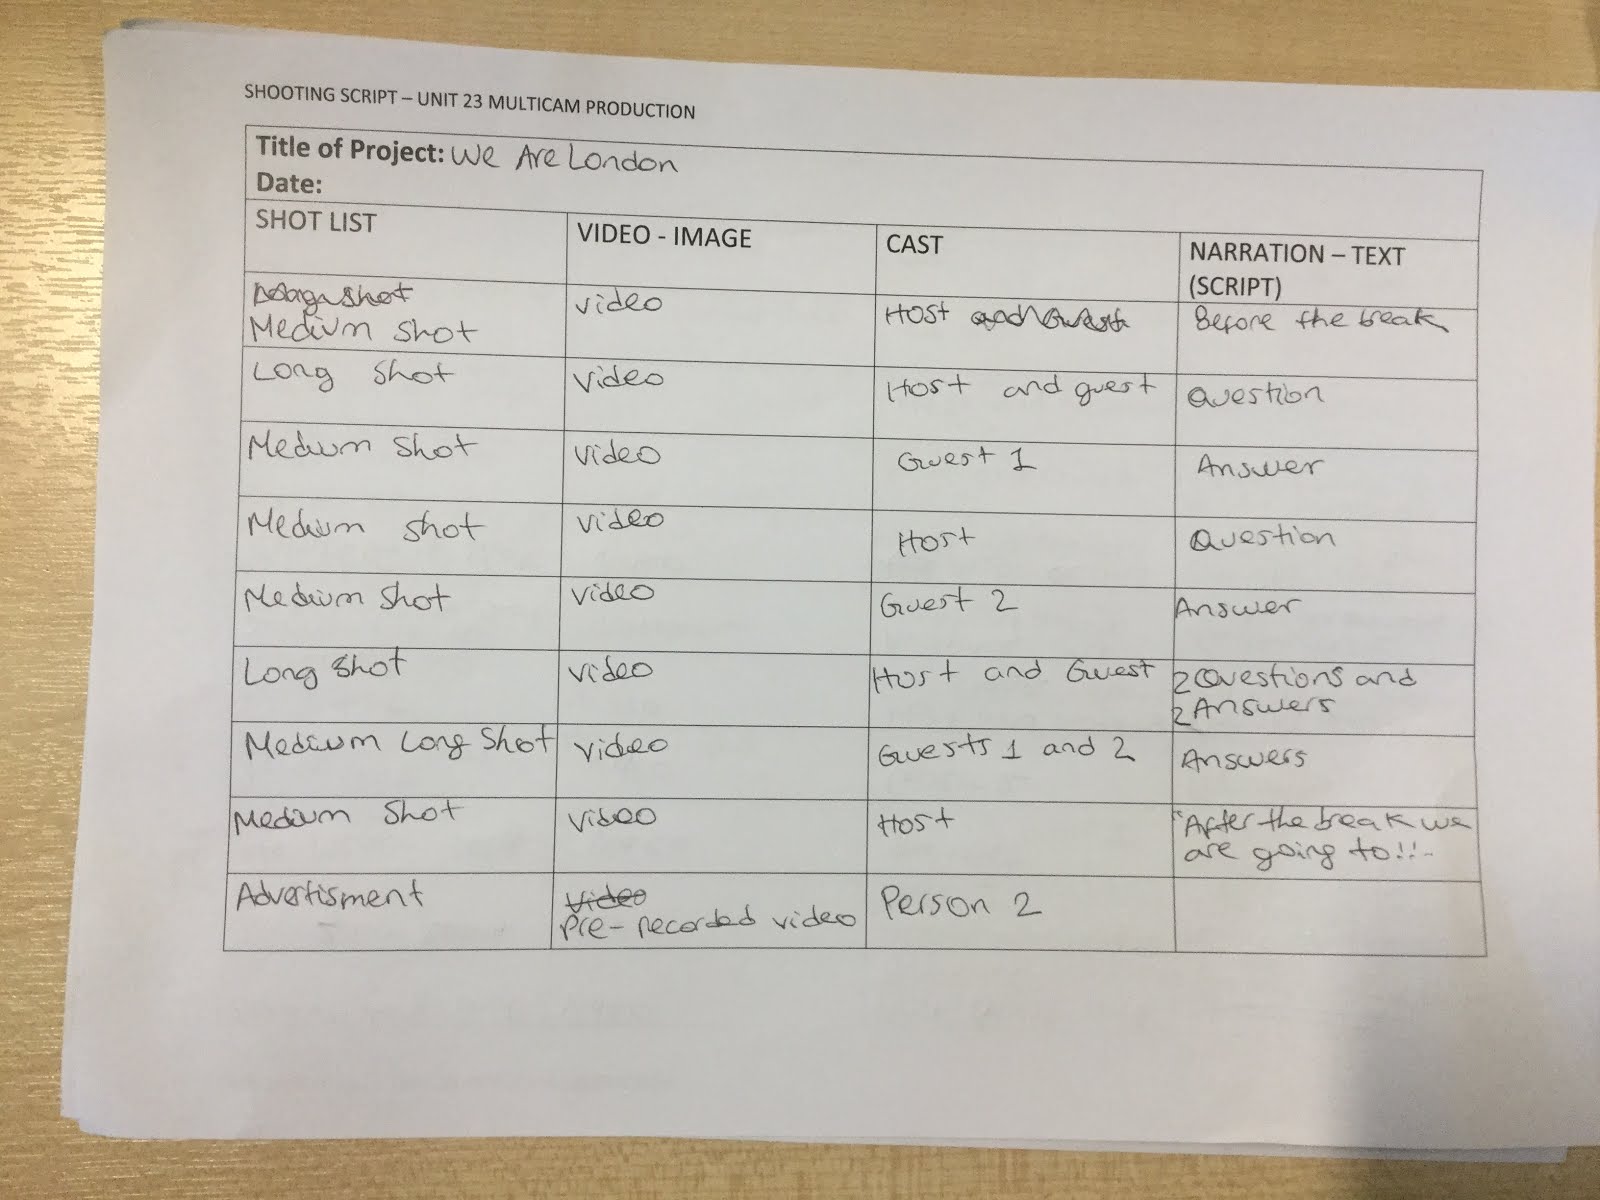 SHOOTING SCRIPT – UNIT 23 MULTICAM PRODUCTION
Title of Project: We Are London
Date:
SHOT LIST VIDEO - IMAGE CAST NARRATION – TEXT
(SCRIPT)
Long shot
Medium shot video Host and Guest Before the break
Long shot video Host and guest Question
Medium shot video Guest 1 Answer
Medium shot video Host Question
Medium shot video Guest 2 Answer
Long shot video Host and Guest 2 Questions and
2 Answers
Medium Long shot video Guests 1 and 2 Answers
Medium shot video Host "After the break we
are going to!!..
Advertisment Video
Pre-recorded video Person 2